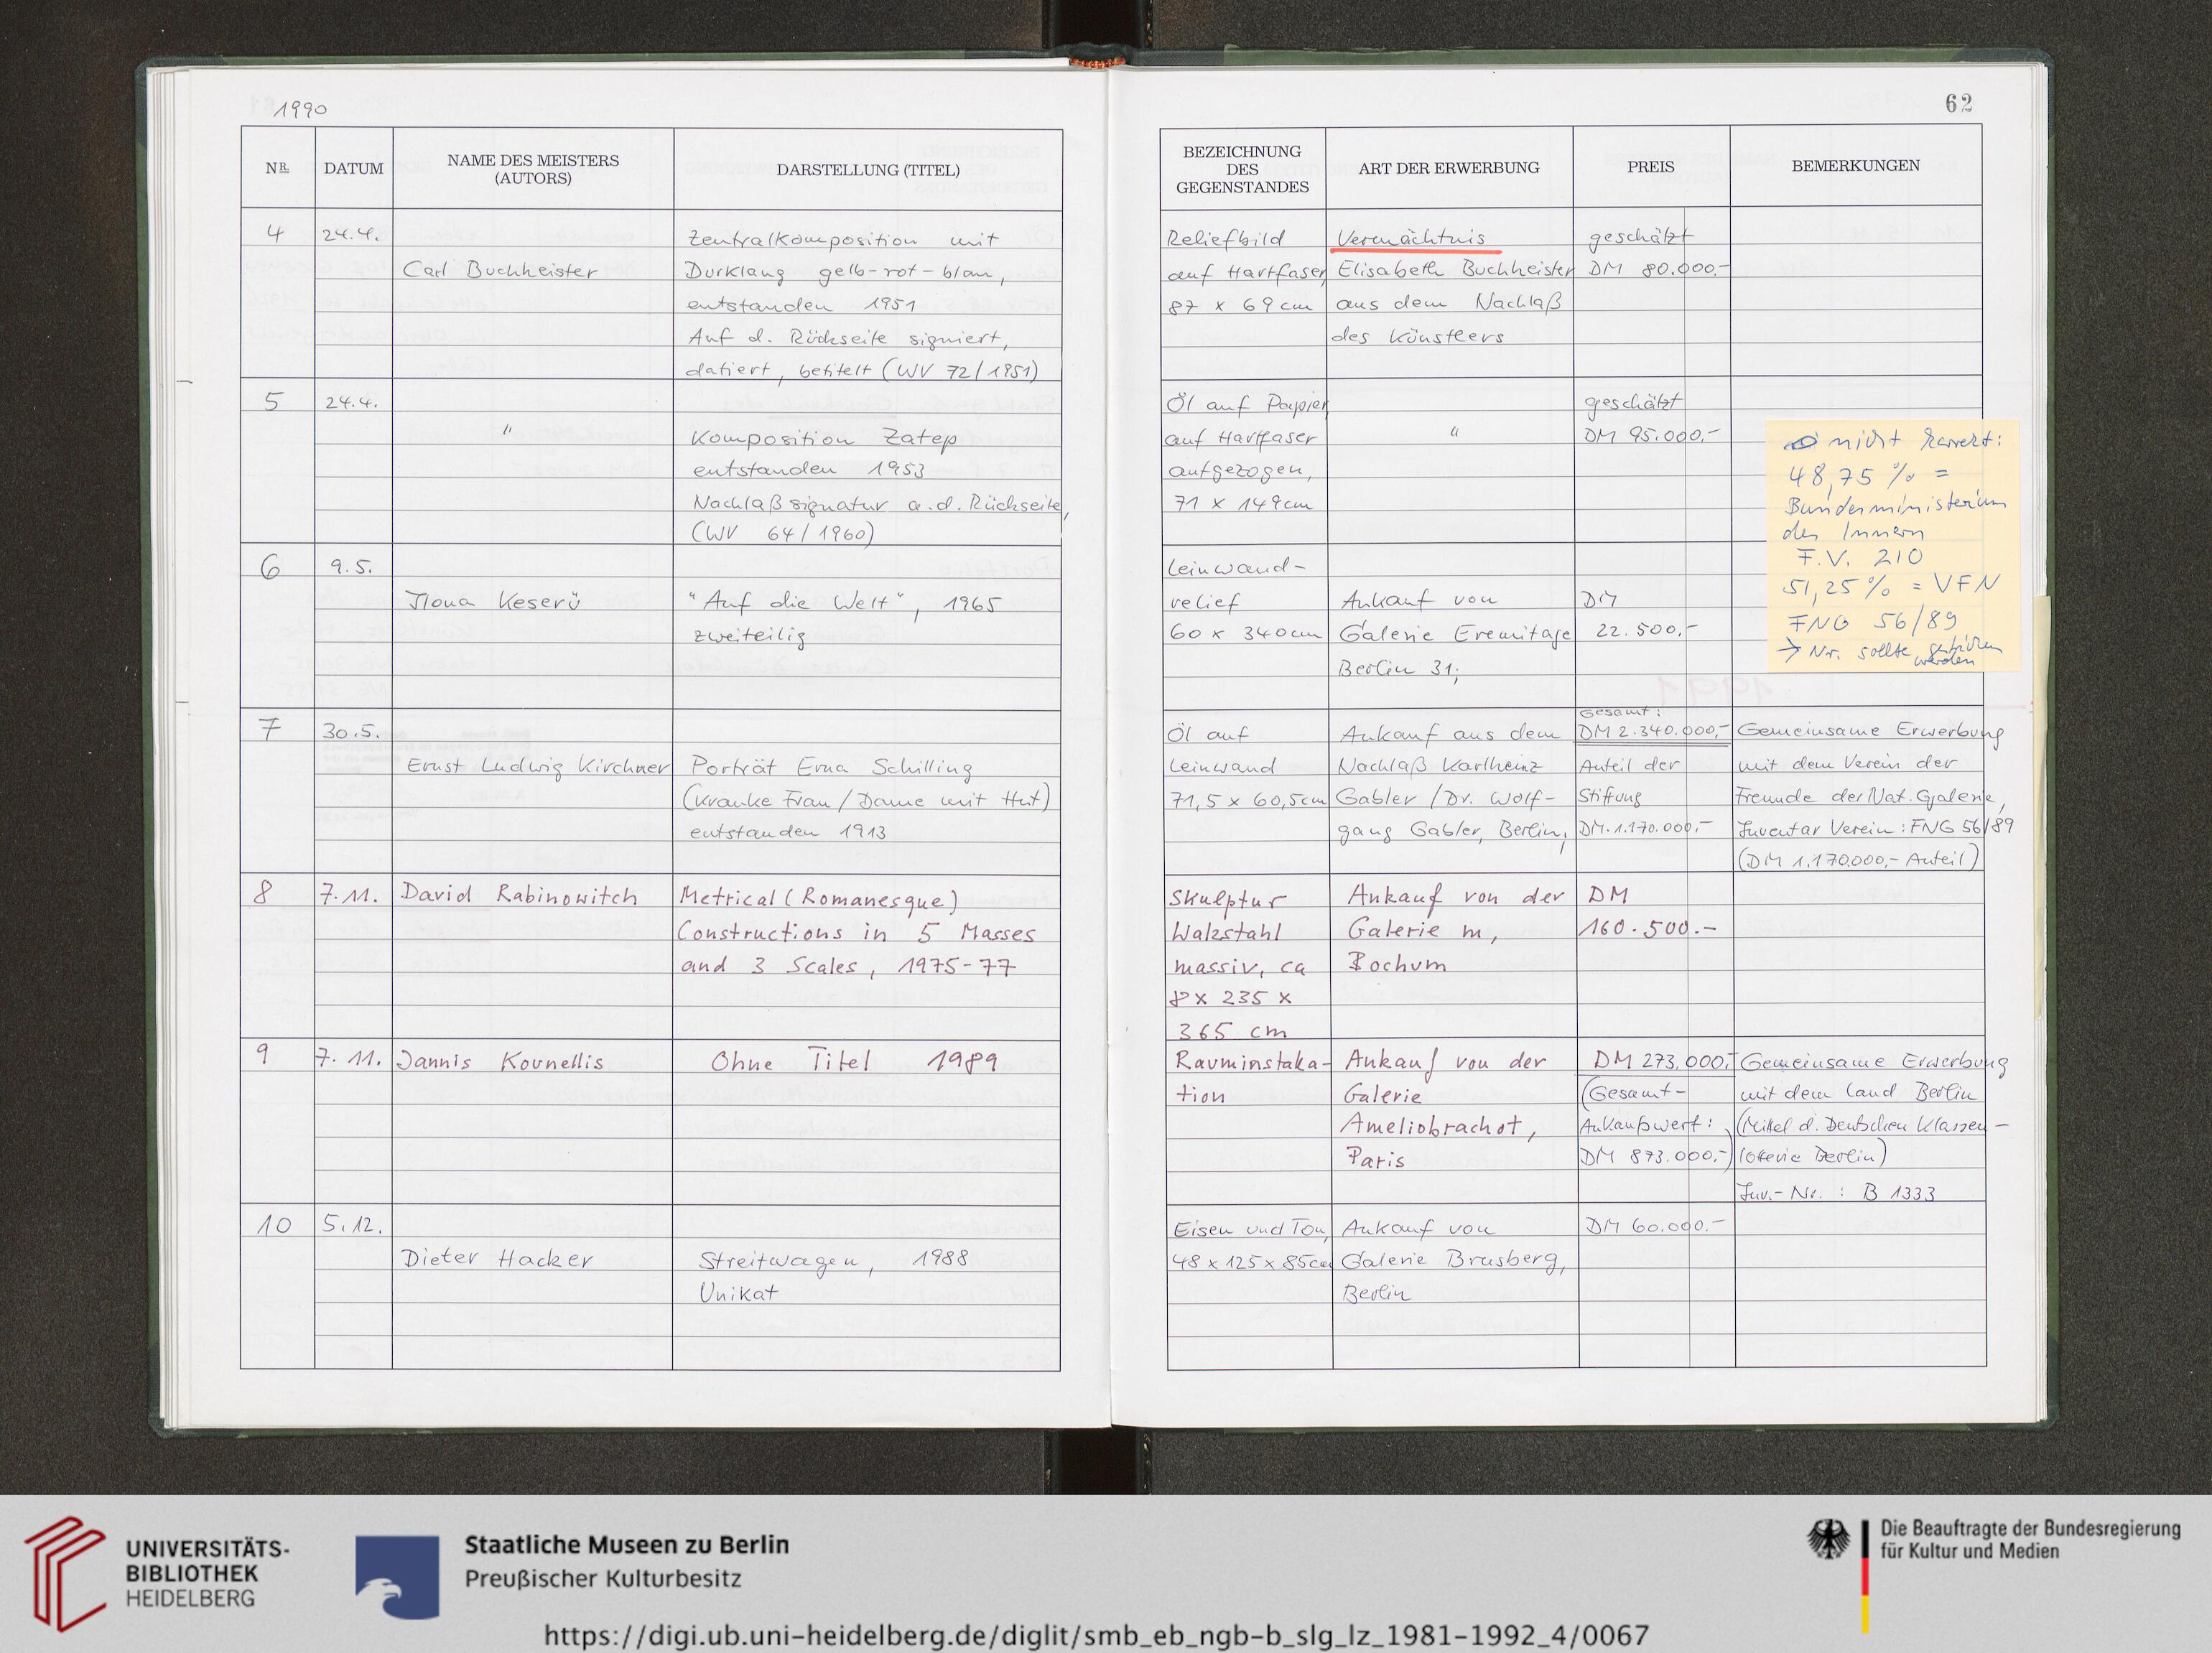 1990
NR.
DATUM
NAME DES MEISTERS
(AUTORS)
DARSTELLUNG (TITEL)
4
24.4.
Carl Buchheister
Zentralkomposition mit
Durklang gelb-rot-blau,
entstanden 1951
Auf d. Rückseite signiert,
datiert, betitelt (WV 72/1951)
5
24.4.
"
Komposition Zatep
entstanden 1953
Nachlaßsignatur a.d. Rückseite,
(WV 64/1960)
6
9.5.
Ilona Keserü
"Auf die Welt", 1965
zweiteilig
7
30.5.
Ernst Ludwig Kirchner
Porträt Erna Schilling
(Kranke Frau / Dame mit Hut)
entstanden 1913
8
7.11.
David Rabinowitch
Metrical (Romanesque)
Constructions in 5 Masses
and 3 Scales, 1975-77
9
7.11.
Jannis Kounellis
Ohne Titel 1989
10
5.12.
Dieter Hacker
Streitwagen, 1988
Unikat
62
BEZEICHNUNG
DES
GEGENSTANDES
ART DER ERWERBUNG
PREIS
BEMERKUNGEN
Reliefbild
auf Hartfaser,
87 x 69 cm
Vermächtnis
Elisabeth Buchheister
aus dem Nachlaß
des Künstlers
geschätzt
DM 80.000,-
Öl auf Papier
auf Hartfaser
aufgezogen,
71 x 149 cm
"
geschätzt
DM 95.000,-
nicht korrekt:
48,75 % =
Bundesministerium
des Innern
F.V. 210
51,25 % = VFN
FNG 56/89
→ Nr. sollte gestrichen
werden
Leinwand-
relief
60 x 340 cm
Ankauf von
Galerie Eremitage
Berlin 31;
DM
22.500,-
Öl auf
Leinwand
71,5 x 60,5 cm
Ankauf aus dem
Nachlaß Karlheinz
Gabler / Dr. Wolf-
gang Gabler, Berlin,
Gesamt:
DM 2.340.000,-
Anteil der
Stiftung
DM 1.170.000,-
Gemeinsame Erwerbung
mit dem Verein der
Freunde der Nat. Galerie,
Inventar Verein: FNG 56/89
(DM 1.170.000,- Anteil)
Skulptur
Walzstahl
massiv, ca
8 x 235 x
365 cm
Ankauf von der
Galerie m,
Bochum
DM
160.500.-
Rauminstaka-
tion
Ankauf von der
Galerie
Ameliobrachot,
Paris
DM 273.000,-
(Gesamt-
Ankaufswert:
DM 873.000,-)
Gemeinsame Erwerbung
mit dem Land Berlin
(Mittel d. Deutschen Klassen-
lotterie Berlin)
Inv.-Nr. : B 1333
Eisen und Ton,
48 x 125 x 85 cm
Ankauf von
Galerie Brusberg,
Berlin
DM 60.000.-
UNIVERSITÄTS-
BIBLIOTHEK
HEIDELBERG
Staatliche Museen zu Berlin
Preußischer Kulturbesitz
Die Beauftragte der Bundesregierung
für Kultur und Medien
https://digi.ub.uni-heidelberg.de/diglit/smb_eb_ngb-b_slg_lz_1981-1992_4/0067